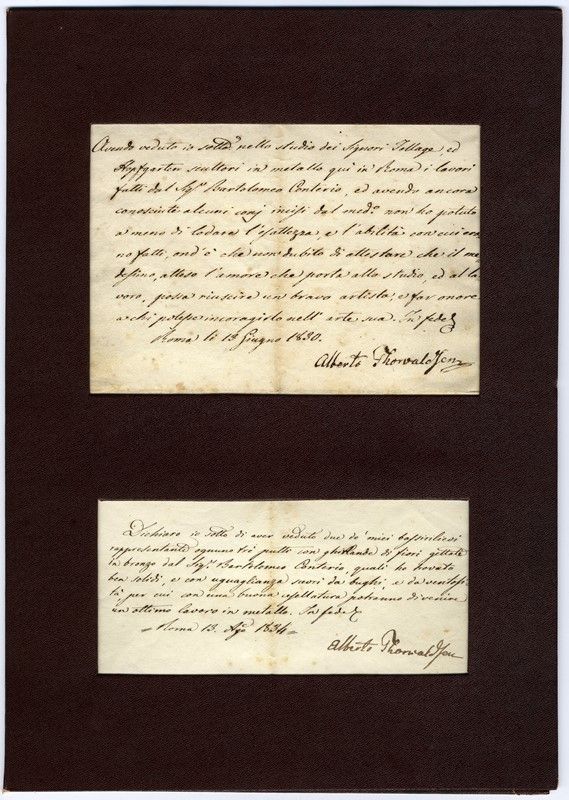 Avendo veduto io sottº nello studio dei Signori Jollage, ed
Hopfgarten scultori in metallo qui in Roma i lavori
fatti dal Sigʳ Bartolomeo Conterio, ed avendo ancora
conosciuto alcuni conj incisi dal medº non ho potuto
a meno di lodare l'esattezza, e l'abilità con cui era
no fatti, ond'è che non dubito di attestare che il me
desimo, atteso l'amore che porta allo studio, ed al la
voro, possa riuscire un bravo artista; e far onore
a chi potesse incoragirlo nell'arte sua. In fede
Roma li 13 Giugno 1830.
Alberto Thorvaldsen
Dichiaro io sottº di aver veduto due de' miei bassirilievi
rappresentante ognuno trè putti con ghirlanda di fiori gettati
in bronzo dal Sigʳ Bartolomeo Conterio, quali ho trovato
ben solidi, e con uguaglianza scevri da bughi, e da ventosi
tà, per cui con una buona rassettatura potranno divenire
un ottimo lavoro in metallo. In fede
= Roma 13. Agº 1834 =
Alberto Thorvaldsen